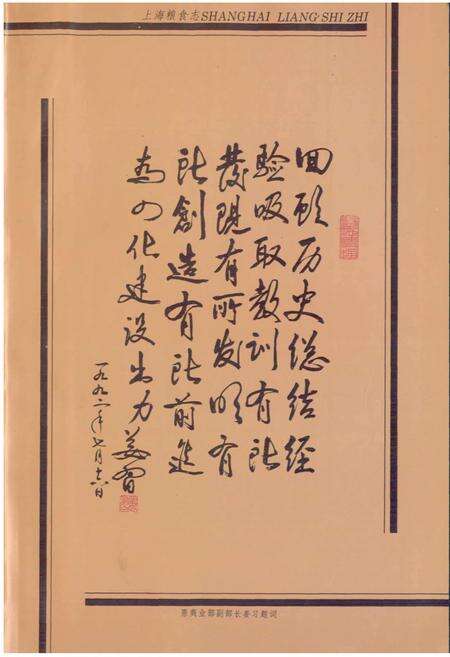 上海粮食志SHANGHAI LIANG'SHI ZHI
回顾历史总结经
验吸取教训有所
发现有所发明有
所创造有所前进
为四化建设出力
姜习
一九九二年七月十六日
原商业部副部长姜习题词